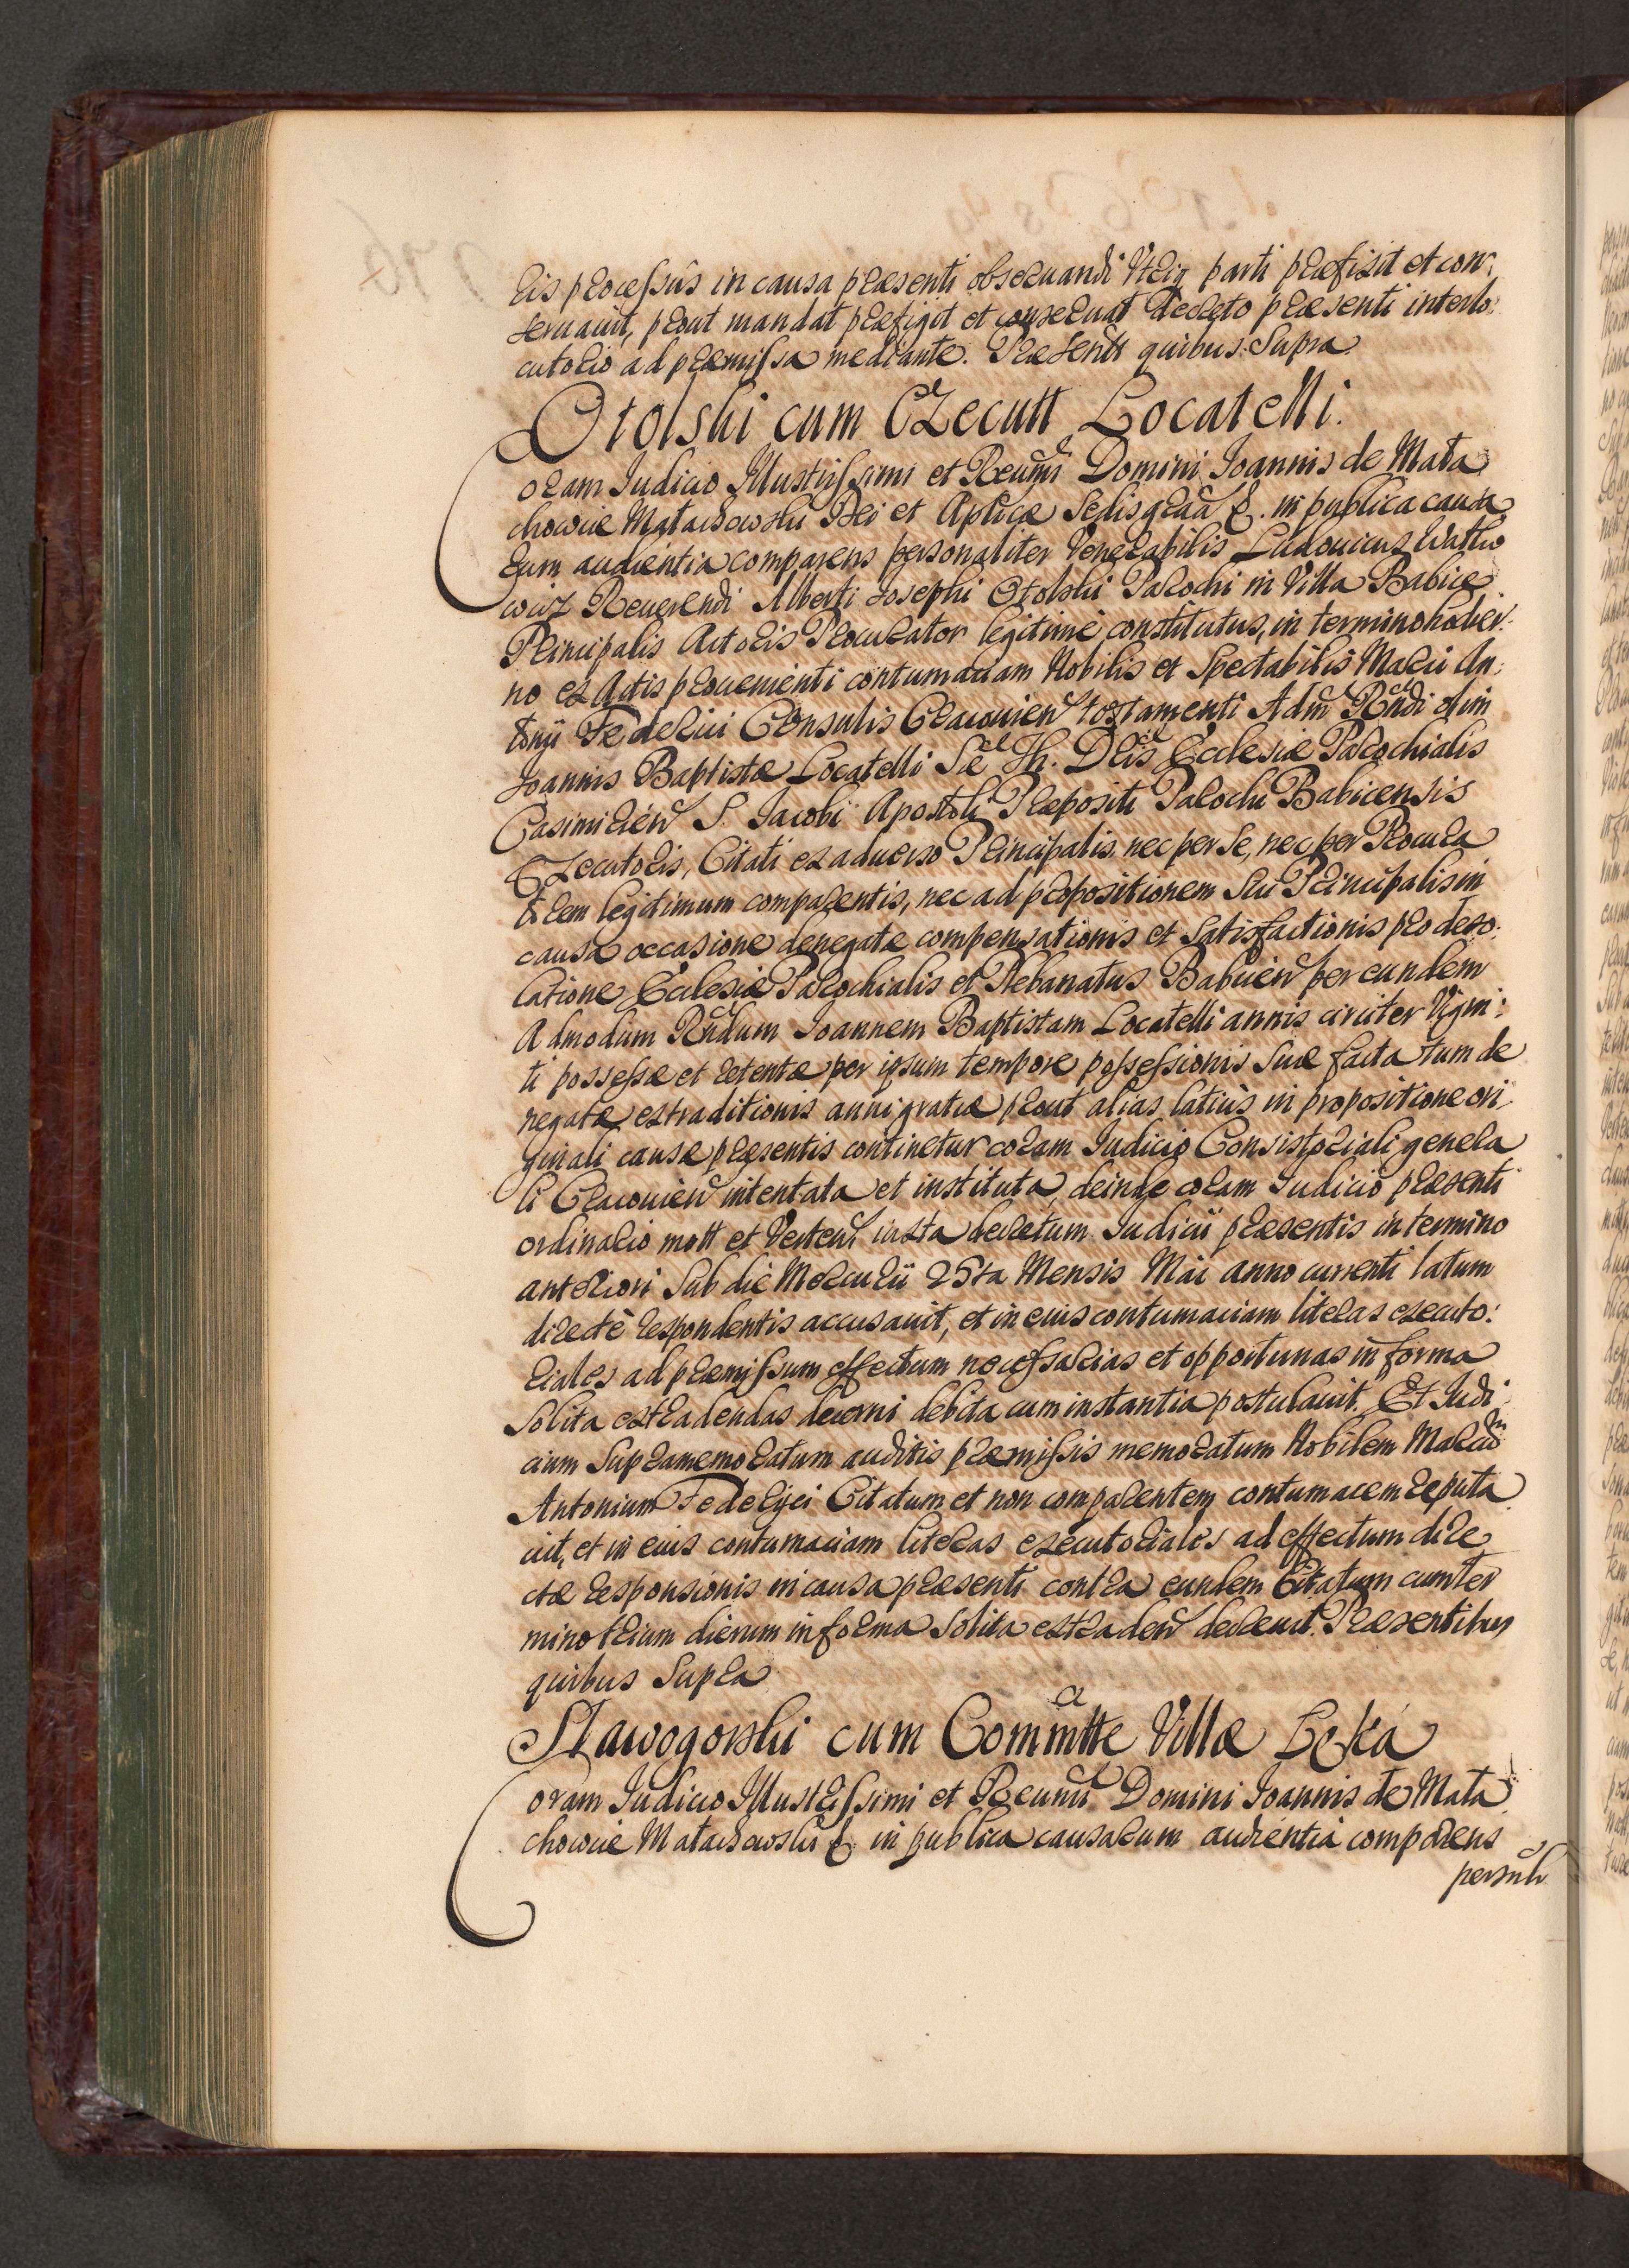 ris processûs in causa præsenti obseruandi Vtriq parti præfixit et con:
seruauit, prout mandat præfigit et conseruat Decreto præsenti interlo:
cutorio ad præmissa mediante. Præsentt quibus Supra
Otolski cum Execcutt Locatelli.
Coram Judicio Illustrissimi et Reuỹi Domini Joannis de Mała
chowice Małachowski Dei et Aplicæ Sedis graã &. in publica causa
rum audientia comparens personaliter Venerabilis Ludouicus Watho
wicz Reuerendi Alberti Josephi Otolski Parochi in Villa Babice
Principalis Actoris Procurator legitime constitutus, in termino hodier:
no ex Actis proueniénti contumaciam Nobilis et Spectabilis Marci An:
tonij Federici Consulis Cracouień testamenti Adm̃ Rñdi olim
Joannis Baptistæ Locatelli Sæ Th. Dris Ecclesiæ Parochialis
Casimirień S. Jacobi Apostoli Præpositi Parochi Babicensis
Executoris, Citati ex aduerso Principalis, nec per se, nec per Procura
torem legitimum comparentis, nec ad propositionem Sui Principalis in
causa occasione denegatæ compensationis et Satisfactionis pro deso:
latione Ecclesiæ Parochialis et Plebanatus Babicień per eundem
Admodum Rñdum Joannem Baptistam Locatelli annis circiter Vigin:
ti possessæ et retentæ per ipsum tempore possessionis Suæ facta tum de
negatæ extraditionis anni gratiæ prout alias latiùs in propositione ori:
ginali causæ præsentis continetur coram Judicio Consistoriali genera
li Cracouień intentata et instituta, deinde coram Judicio præsenti
ordinario mott et Verten iuxta decretum Judicii præsentis in termino
anteriori Sub die Mercurii 25ta Mensis Mai anno currenti latum
directè respondentis accusauit, et in eius contumaciam literas executo:
riales ad præmissum effectum necessarias et opportunas in forma
Solita extradendas decerni debita cum instantia postulauit. Et Judi:
cium Supramemoratum auditis præmissis memoratum Nobilem Marcũ
Antonium Federici Citatum et non comparentem contumacem reputa
uit, et in eius contumaciam literas executoriales ad effectum dire
ctæ responsionis in causa præsenti contra eundem Citatum cum ter
mino trium dierum in forma Solita extraden decreuit. Præsentibus
quibus Supra
Stawogorski cum Commttte Villæ Łęka
Coram Judicio Illustrissimi et Reuñi Domini Joannis de Mała
chowice Małachowski & in publica causarum audientia comparens
personlr